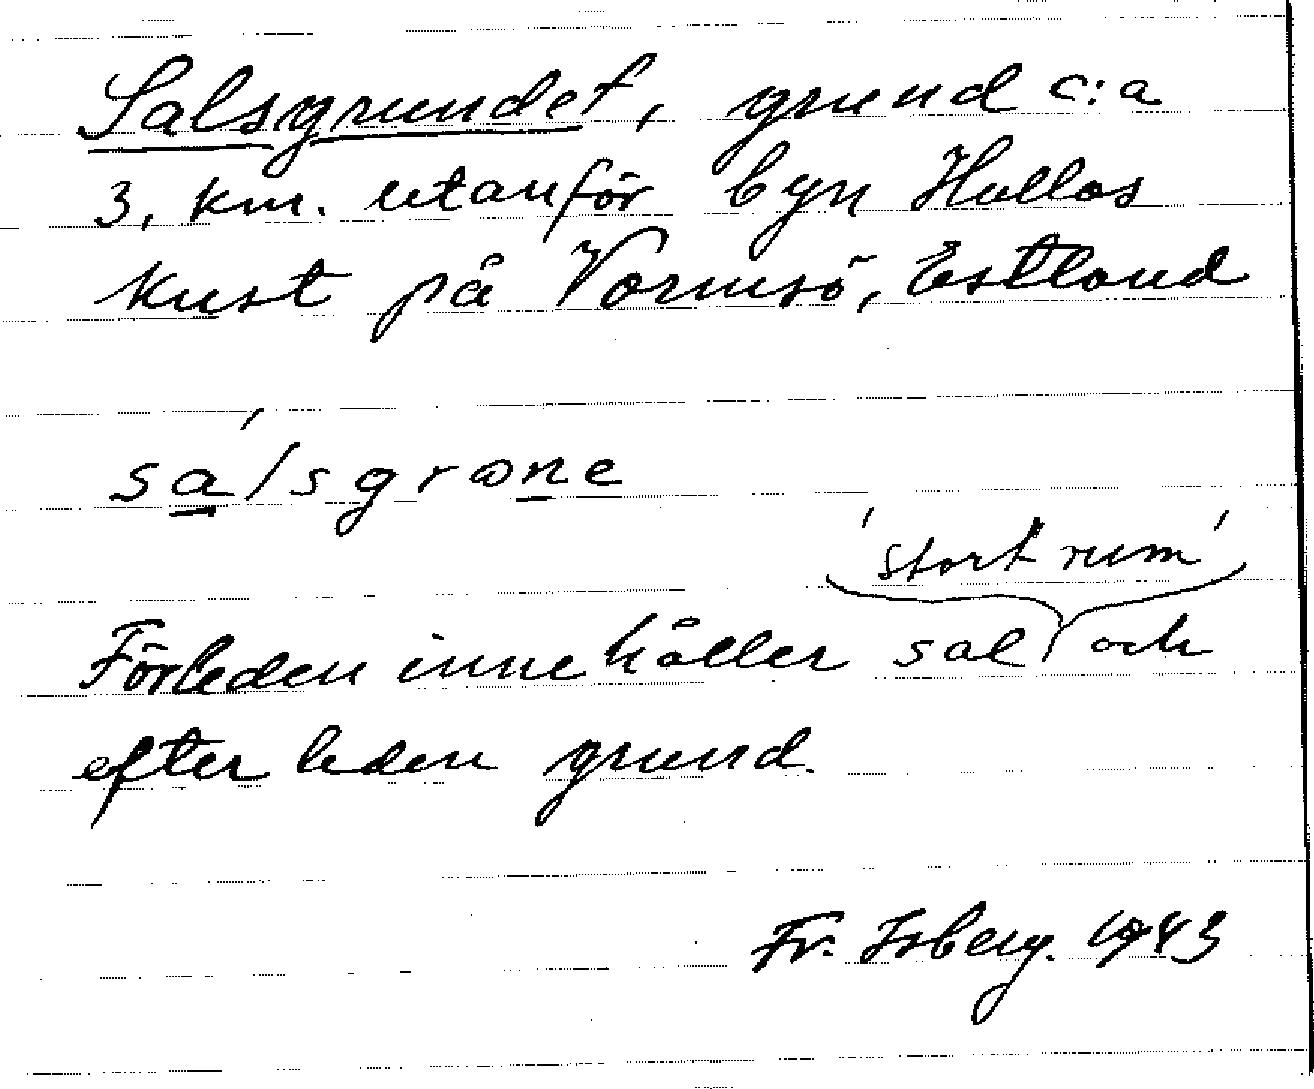 Salsgrundet, grund c:a
3, km. utanför byn Hullos
kust på Vormsö, Estland
sa'lsgrɷne
'stort rum'
Förleden innehåller sal och
efterleden grund.
Fr. Isberg. 1943